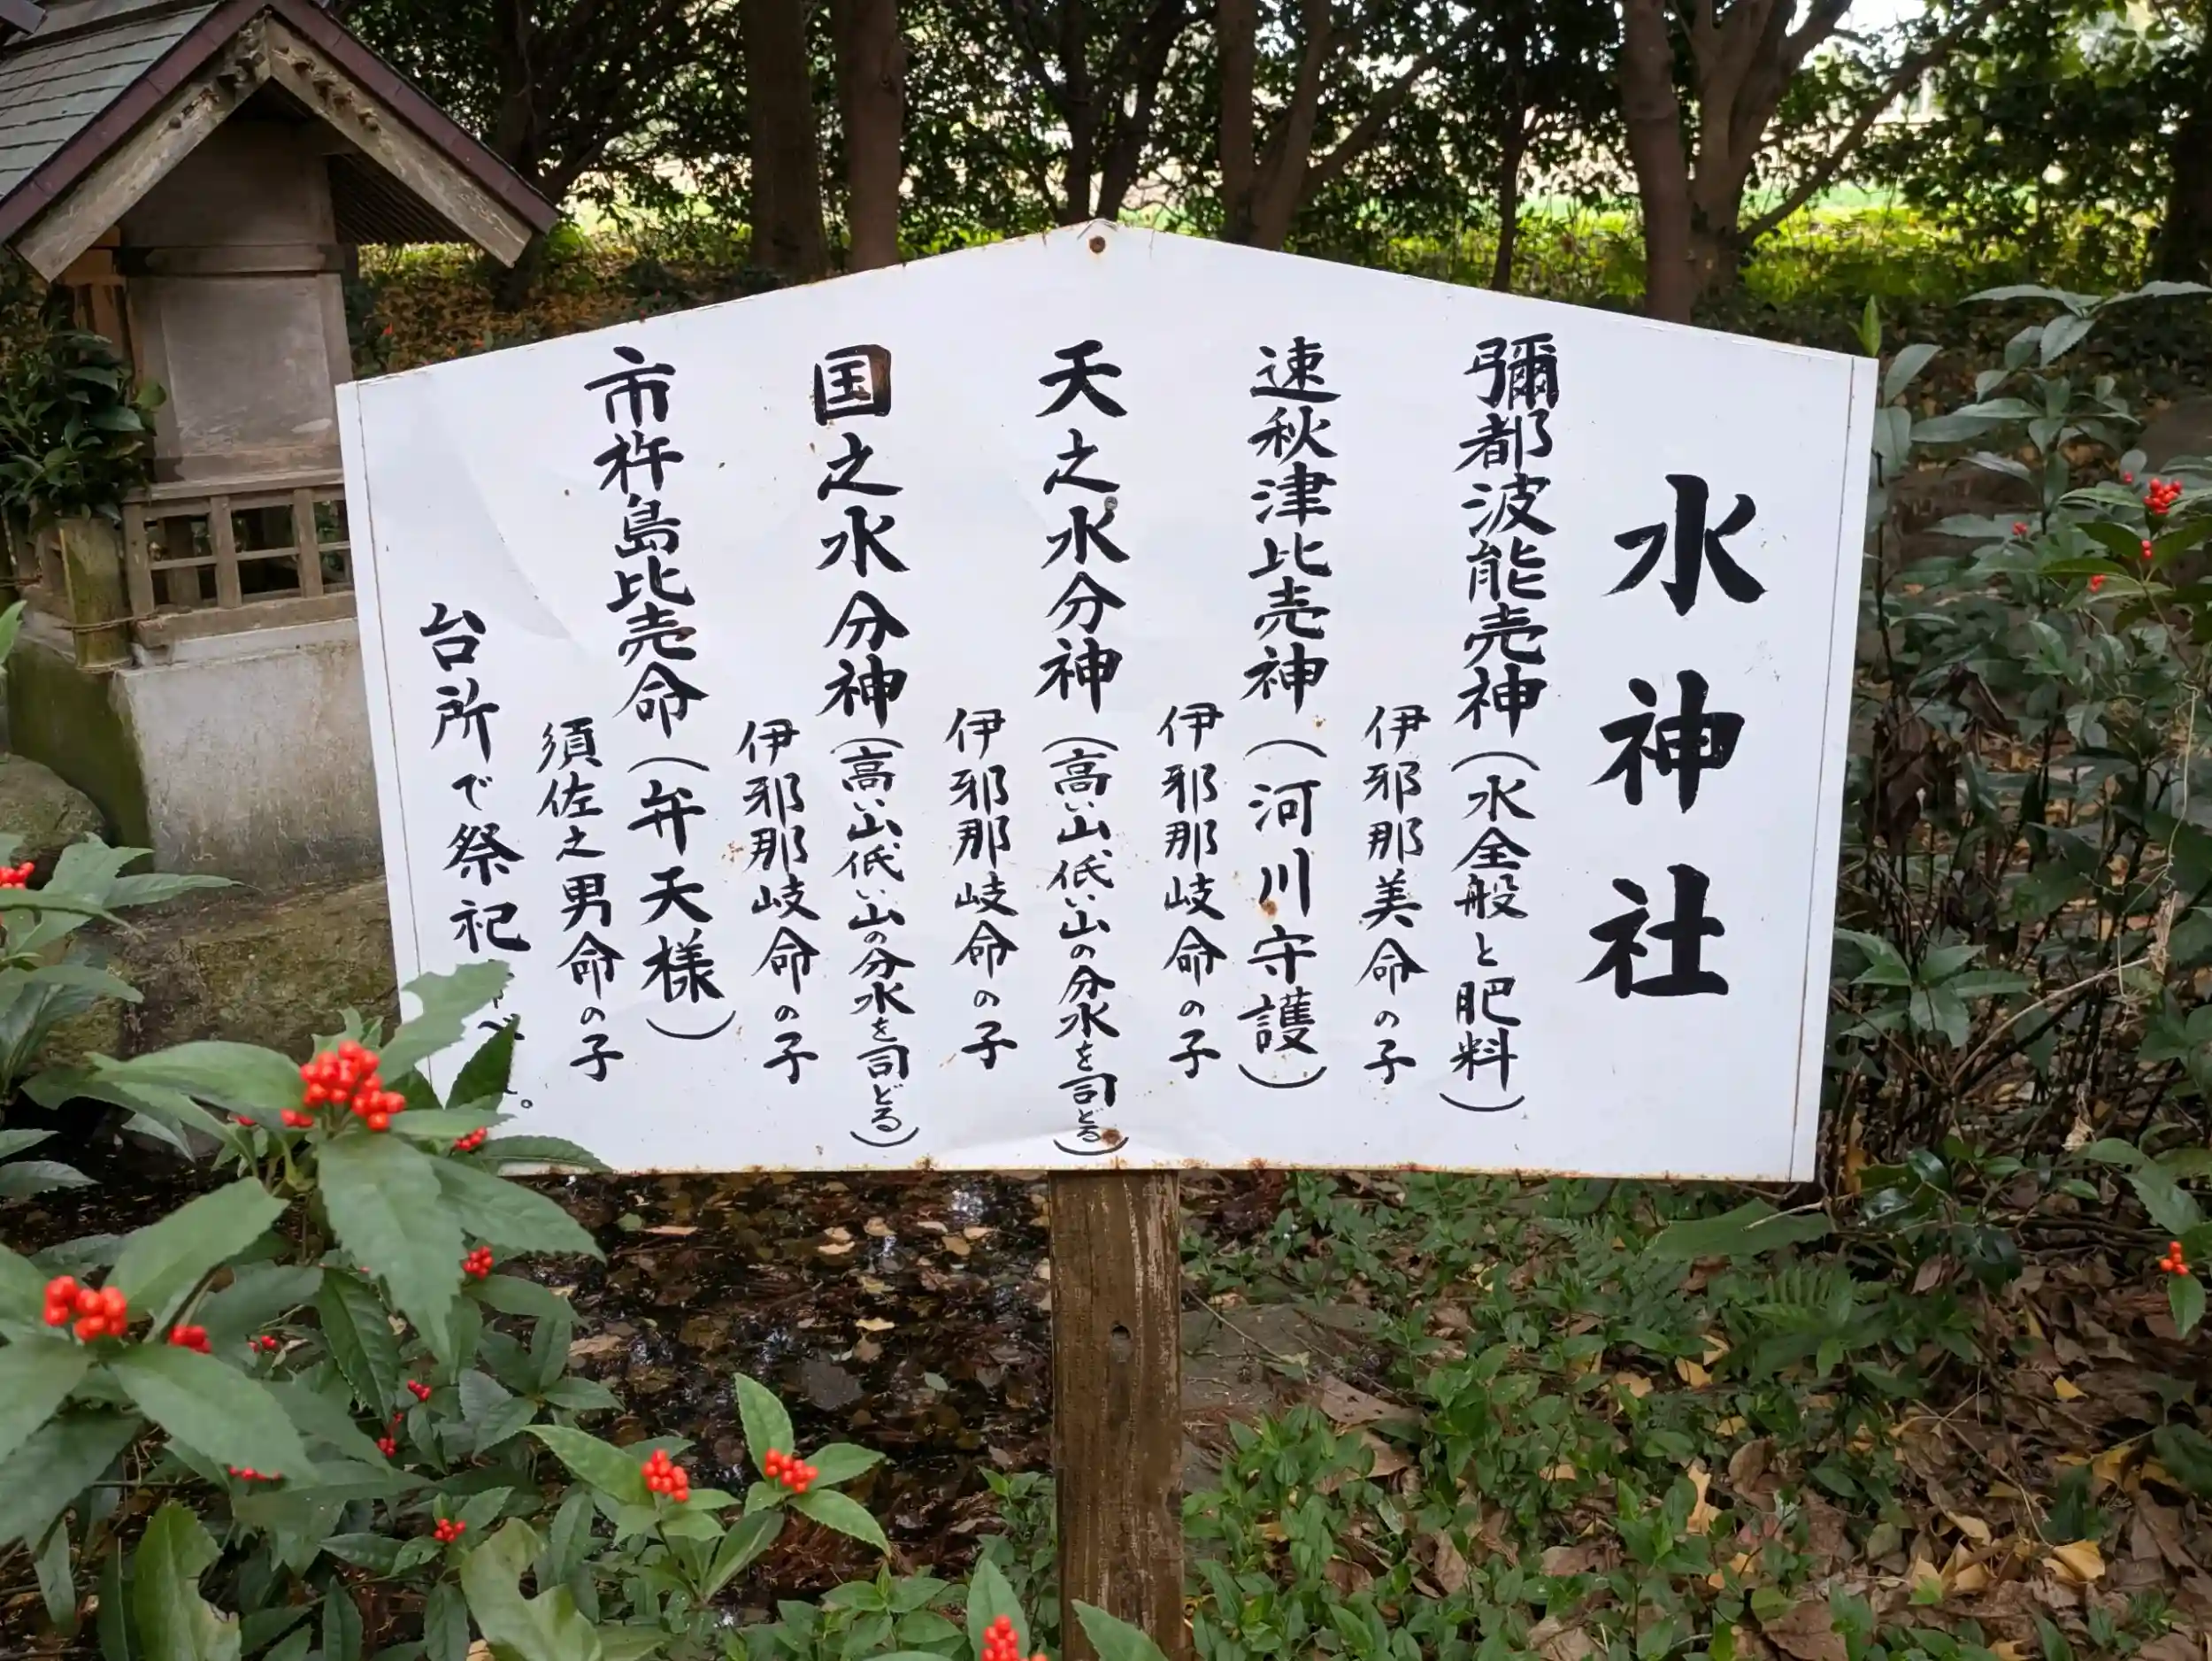 水神社
彌都波能売神（水全般と肥料）
伊邪那美命の子
速秋津比売神（河川守護）
伊邪那岐命の子
天之水分神（高い山低い山の分水を司どる）
伊邪那岐命の子
国之水分神（高い山低い山の分水を司どる）
伊邪那岐命の子
市杵島比売命（弁天様）
須佐之男命の子
台所で祭祀